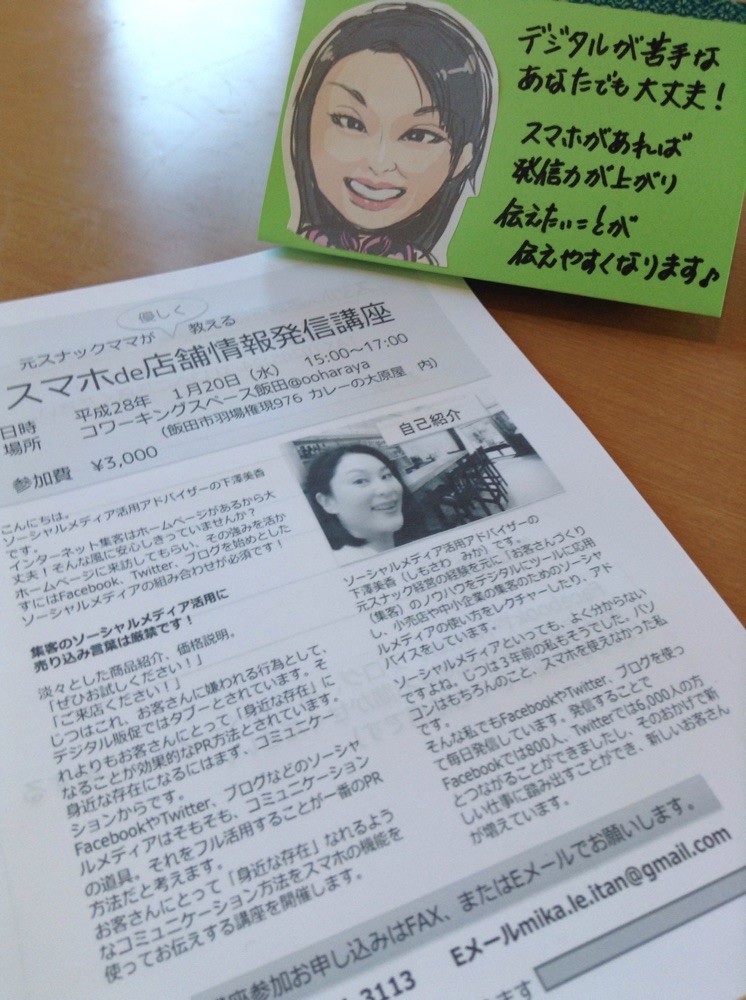 デジタルが苦手な
あなたでも大丈夫!
スマホがあれば
発信力が上がり
伝えたいことが
伝えやすくなります♪
優しく
元スナックママが 教える
スマホde店舗情報発信講座
日時 平成28年 1月20日(水) 15:00〜17:00
場所 コワーキングスペース飯田@ooharaya
(飯田市羽場権現976 カレーの大原屋 内)
参加費 ¥3,000
こんにちは。
ソーシャルメディア活用アドバイザーの下澤美香
です。
インターネット集客はホームページがあるから大
丈夫!そんな風に安心しきっていませんか?
ホームページに来訪してもらい、その強みを活か
すにはFacebook、Twitter、ブログを始めとした
ソーシャルメディアの組み合わせが必須です!
集客のソーシャルメディア活用に
売り込み言葉は厳禁です!
淡々とした商品紹介、価格説明。
「ぜひお試しください!」
「ご来店ください!」
じつはこれ、お客さんに嫌われる行為として、
デジタル販促ではタブーとされています。そ
れよりもお客さんにとって「身近な存在」に
なることが効果的なPR方法とされています。
身近な存在になるにはまず、コミュニケー
ションからです。
FacebookやTwitter、ブログなどのソーシャ
ルメディアはそもそも、コミュニケーション
の道具。それをフル活用することが一番のPR
方法だと考えます。
お客さんにとって「身近な存在」なれるよう
なコミュニケーション方法をスマホの機能を
使ってお伝えする講座を開催します。
自己紹介
ソーシャルメディア活用アドバイザーの
下澤美香(しもさわ みか)です。
元スナック経営の経験を元に「お客さんづくり
(集客)のノウハウをデジタルにツールに応用
し、小売店や中小企業の集客のためのソーシャ
ルメディアの使い方をレクチャーしたり、アド
バイスをしています。
ソーシャルメディアといっても、よく分からない
ですよね。じつは3年前の私もそうでした。パソ
コンはもちろんのこと、スマホを使えなかった私
です。
そんな私でもFacebookやTwitter、ブログを使っ
て毎日発信しています。発信することで
Facebookでは800人、Twitterでは6,000人の方
とつながることができましたし、そのおかげで新
しい仕事に踏み出すことができ、新しいお客さん
が増えています。
座参加お申し込みはFAX、またはEメールでお願いします。
3113 Eメールmika.le.itan@gmail.com